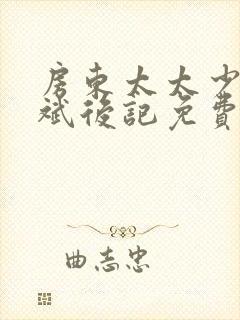 房東太太少
斌後記免費
曲志忠